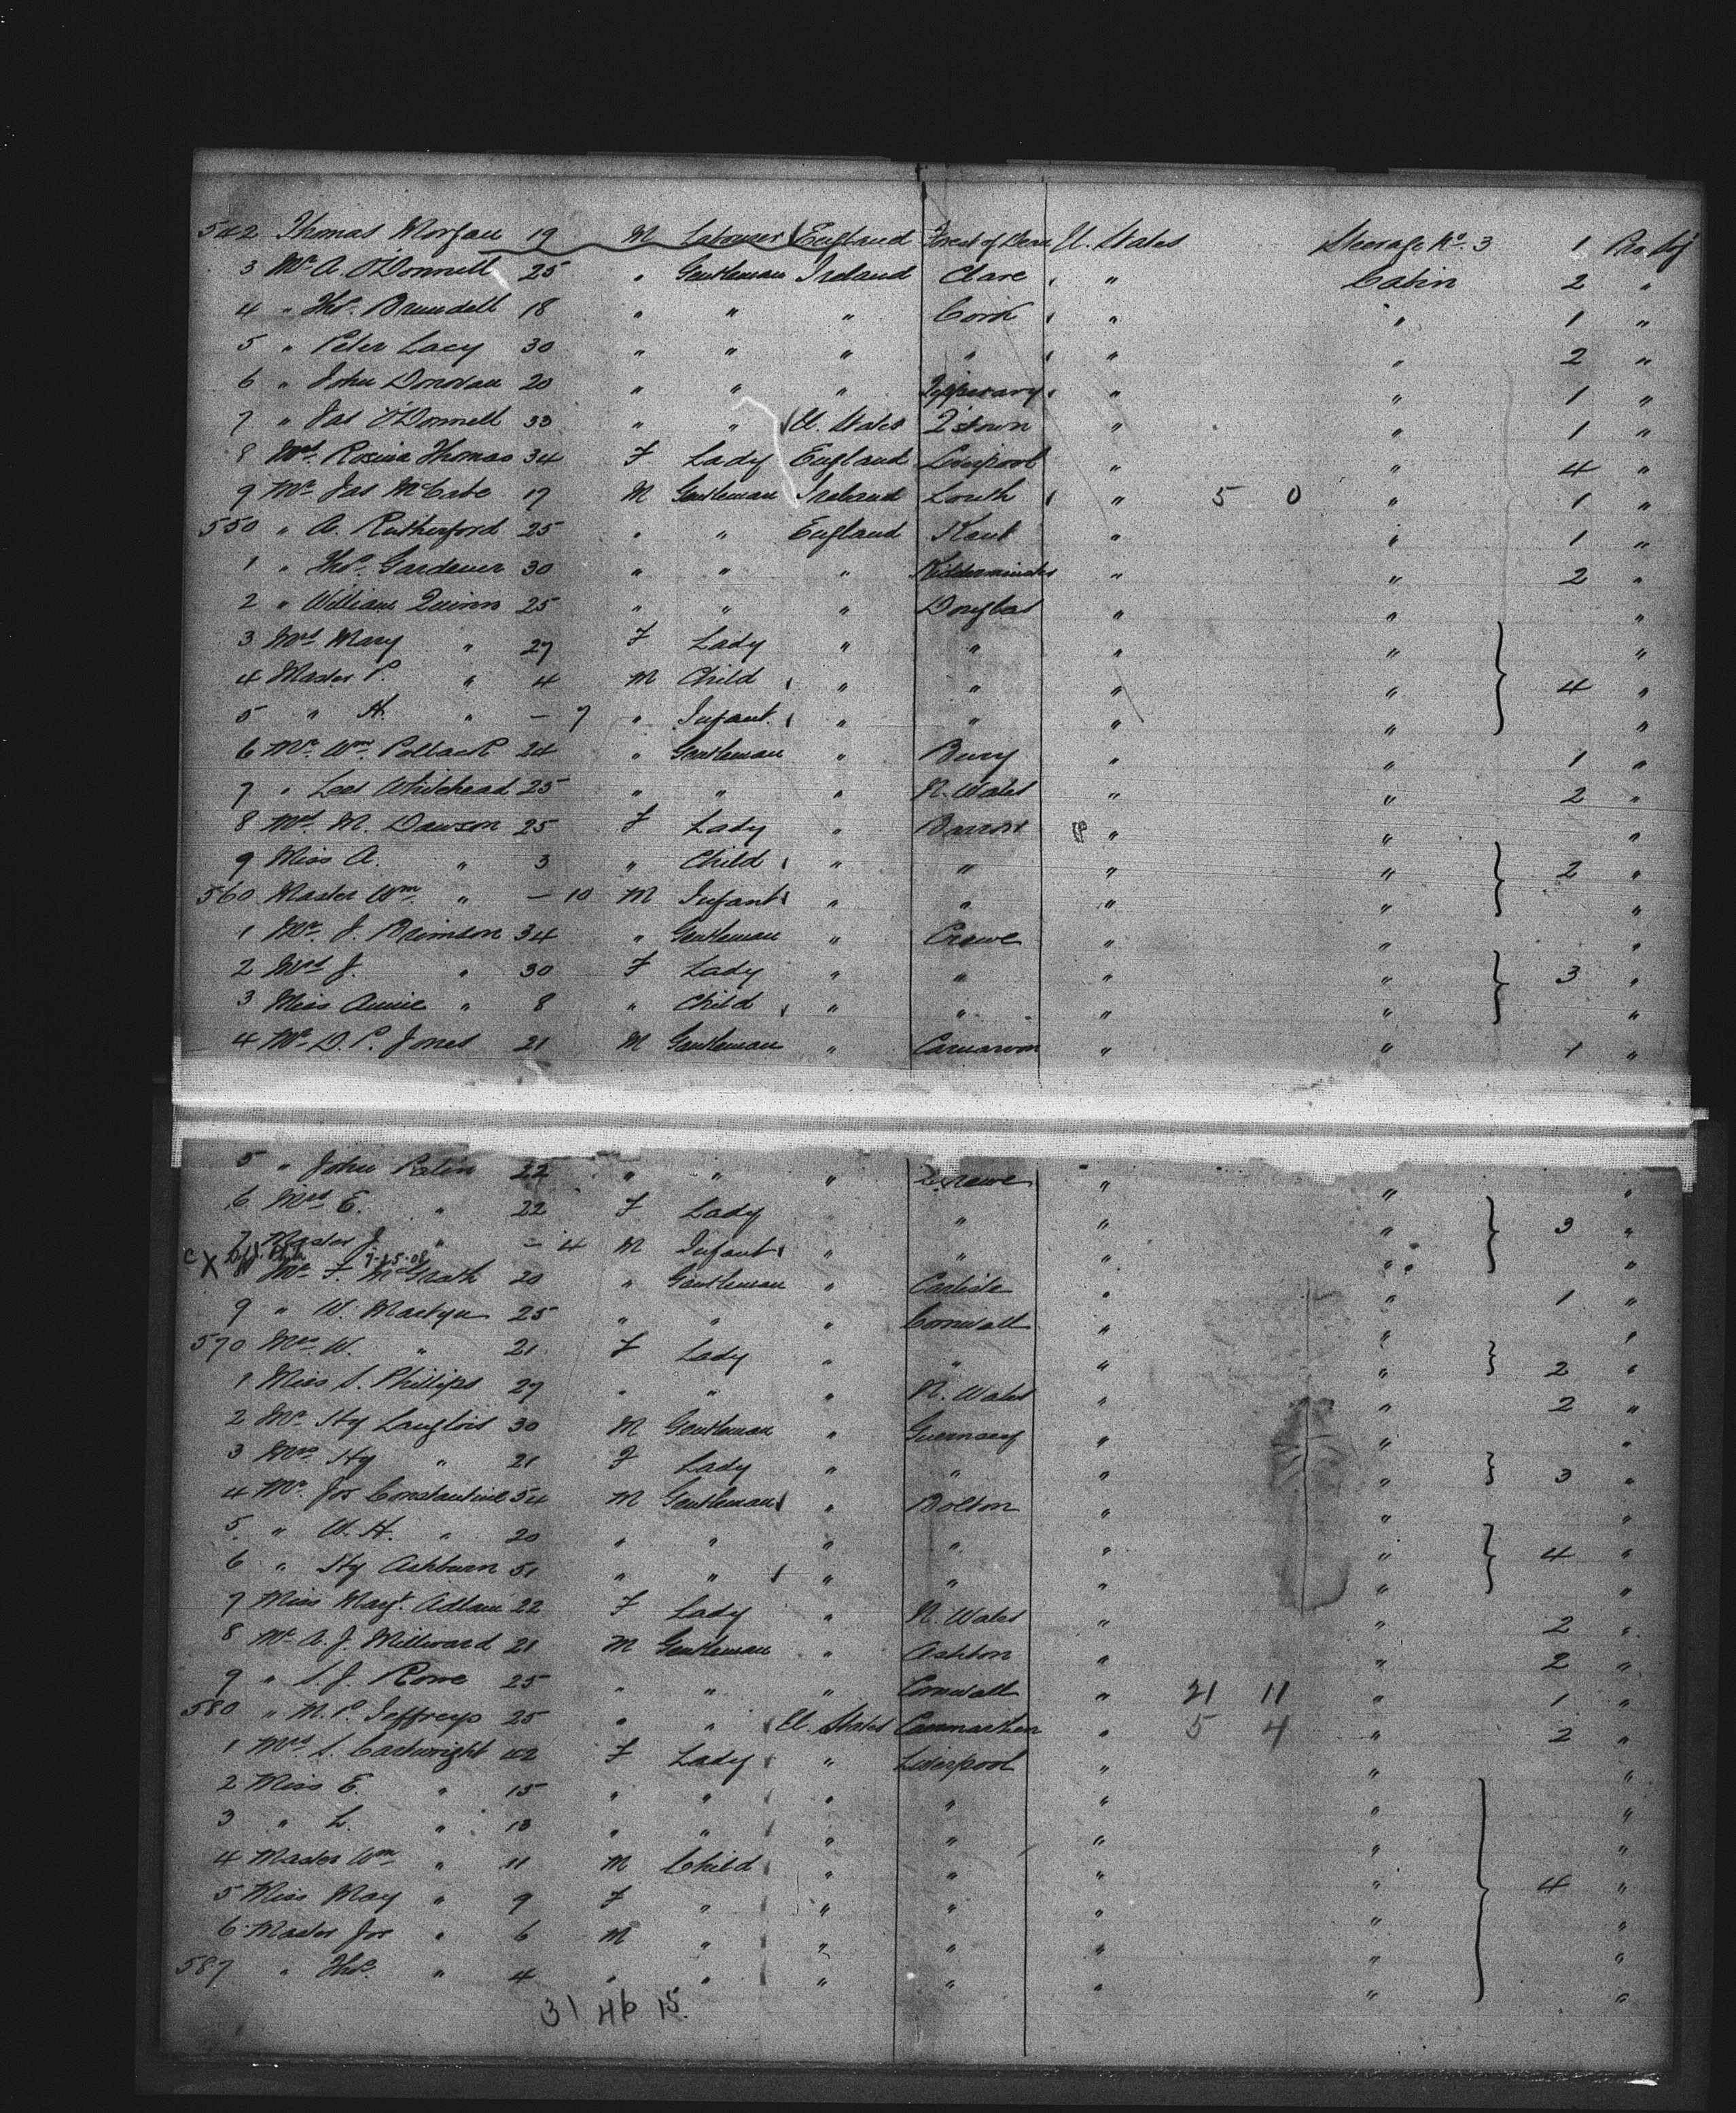 542 Thomas Morgan 19 M Labourer England Forest of Dean U. States Steerage No. 3 1 Pro Stj
3 Mr A. O'Donnell 25 " Gentleman Ireland Clare " Cabin 2 "
4 " Thos. Brundell 18 " " " Cork " " 1 "
5 " Peter Lacy 30 " " " " " " 2 "
6 " John Donovan 20 " " " Tipperary " " 1 "
7 " Jas O'Donnell 33 " " U. States Q'stown " " 1 "
8 Mrs. Rosina Thomas 34 F Lady England Liverpool " " 4 "
9 Mr. Jas McCabe 17 M Gentleman Ireland Louth " 5 0 " 1 "
550 " A. Rutherford 25 " " England Kent " " 1 "
1 " Thos. Gardener 30 " " " Kidderminster " " 2 "
2 " William Quinn 25 " " " Douglas " " "
3 Mrs Mary " 27 F Lady " " " " "
4 Master P. " 4 M Child " " " " 4 "
5 " H. " - 7 " Infant " " " " "
6 Mr. Wm. Pollack 24 " Gentleman " Bury " " 1 "
7 " Lees Whitehead 25 " " " N. Wales " " 2 "
8 Mrs. M. Dawson 25 F Lady " Barrow " " "
9 Miss A. " 3 " Child " " " " 2 "
560 Master Wm. " - 10 M Infant " " " " "
1 Mr. J. Brimson 34 " Gentleman " Crewe " " "
2 Mrs J. " 30 F Lady " " " " 3 "
3 Miss Annie " 8 " Child " " " " "
4 Mr. D. P. Jones 21 M Gentleman " Carnarvon " " 1 "
5 " John Palin 22 " " " Crewe " " "
6 Mrs E. " 22 F Lady " " " 3 "
7 Master J. " - 4 M Infant " " " " "
c X 7-25-08
8 Mr. F. McGrath 20 " Gentleman " Carlisle " " 1 "
9 " W. Martyn 25 " " " Cornwall " " "
570 Mrs. W. " 21 F Lady " " " " 2 "
1 Miss S. Phillips 27 " " " N. Wales " " 2 "
2 Mr. Hy Langlois 30 M Gentleman " Guernsey " " "
3 Mrs. Hy " 21 F Lady " " " " 3 "
4 Mr. Jos Constantine 54 M Gentleman " Bolton " " "
5 " W. H. " 20 " " " " " " 4 "
6 " Hy Ashburn 51 " " " " " " "
7 Miss Magt. Adlam 22 F Lady " N. Wales " " 2 "
8 Mr. A. J. Millward 21 M Gentleman " Ashton " " 2 "
9 " S J. Rowe 25 " " " Cornwall " 21 11 " 1 "
580 " M. P. Jeffreys 25 " " U. States Carmarthen " 5 4 " 2 "
1 Mrs S. Cartwright 42 F Lady " Liverpool " " "
2 Miss E. " 15 " " " " " " "
3 " L. " 13 " " " " " " "
4 Master Wm. " 11 M Child " " " " "
5 Miss May " 9 F " " " " " 4 "
6 Master Jos " 6 M " " " " " "
587 " Thos. " 4 " " " " " " "
31 46 15